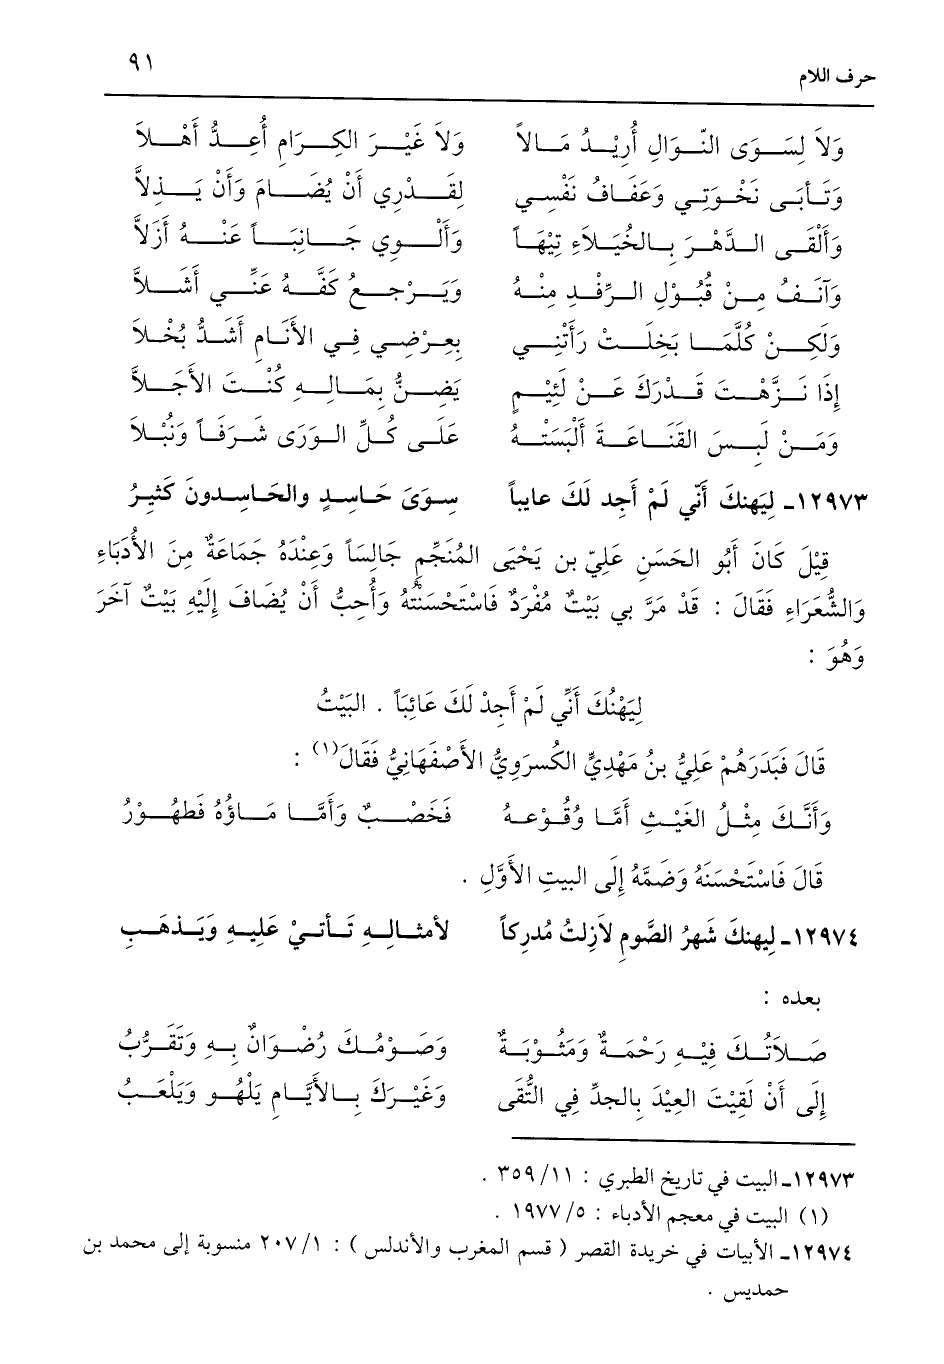 حرف اللام ٩١
وَلاَ لِسَوَى النَّوَالِ أُرِيْدُ مَالاً وَلاَ غَيْرَ الكِرَامِ أُعِدُّ أَهْلاَ
وَتَأبَى نَخْوَتِي وَعَفَافُ نَفْسِي لِقَدْرِي أَنْ يُضَامَ وَأَنْ يَذِلاَّ
وَأَلْقَى الدَّهْرَ بِالخُيَلاَءِ تِيْهَاً وَأَلْوِي جَانِبَاً عَنْهُ أَزَلاَّ
وَآنَفُ مِنْ قُبُوْلِ الرِّفْدِ مِنْهُ وَيَرْجِعُ كَفَّهُ عَنِّي أَشَلاَّ
وَلَكِنْ كُلَّمَا بَخِلَتْ رَأَتْنِي بِعِرْضِي فِي الأَنَامِ أَشَدُّ بُخْلاَ
إِذَا نَزَّهْتَ قَدْرَكَ عَنْ لَئِيْمٍ يَضِنُّ بِمَالِهِ كُنْتَ الأَجَلاَّ
وَمَنْ لَبِسَ القَنَاعَةَ أَلْبَسَتْهُ عَلَى كُلِّ الوَرَى شَرَفَاً وَنُبْلاَ
١٢٩٧٣ـ لِيَهنكَ أَنّي لَمْ أَجِد لَكَ عايباً سِوَىَ حَاسِدٍ والحَاسِدونَ كَثيرُ
قِيْلَ كَانَ أَبُو الحَسَنِ عَلِيّ بن يَحْيَى المُنَجِّمِ جَالِسَاً وَعِنْدَهُ جَمَاعَةٌ مِنَ الأُدَبَاءِ
وَالشُّعَرَاءِ فَقَالَ : قَدْ مَرَّ بِي بَيْتٌ مُفْرَدٌ فَاسْتَحْسَنْتُهُ وَأُحِبُّ أَنْ يُضَافَ إِلَيْهِ بَيْتٌ آخَرَ
وَهُوَ :
لِيَهْنُكَ أَنِّي لَمْ أَجِدْ لَكَ عَائِبَاً . البَيْتُ
قَالَ فَبَدَرَهُمْ عَلِيُّ بنُ مَهْدِيٍّ الكُسرَوِيُّ الأَصْفَهَانِيُّ فَقَالَ(١) :
وَأَنَّكَ مِثْلُ الغَيْثِ أَمَّا وُقُوْعهُ فَخَصْبٌ وَأَمَّا مَاؤُهُ فَطَهُوْرُ
قَالَ فَاسْتَحْسَنَهُ وَضَمَّهُ إِلَى البَيتِ الأَوَّلِ .
١٢٩٧٤ـ لِيهنكَ شَهرُ الصَّومِ لاَزِلتُ مُدركاً لأمثالِهِ تَأتيْ عَليهِ وَيَذهَب
بعده :
صَلاَتُكَ فِيْهِ رَحْمَةٌ وَمَثُوْبَةٌ وَصَوْمُكَ رُضْوَانٌ بِهِ وَتَقَرُّبُ
إِلَى أَنْ لَقِيْتَ العِيْدَ بِالجدِّ فِي التُّقَى وَغَيْرَكَ بِالأَيَّامِ يَلْهُو وَيَلْعَبُ
١٢٩٧٣ـ البيت في تاريخ الطبري : ١١/ ٣٥٩ .
(١) البيت في معجم الأدباء : ٥/ ١٩٧٧ .
١٢٩٧٤ـ الأبيات في خريدة القصر ( قسم المغرب والأندلس ) : ١/ ٢٠٧ منسوبة إلى محمد بن
حمديس .